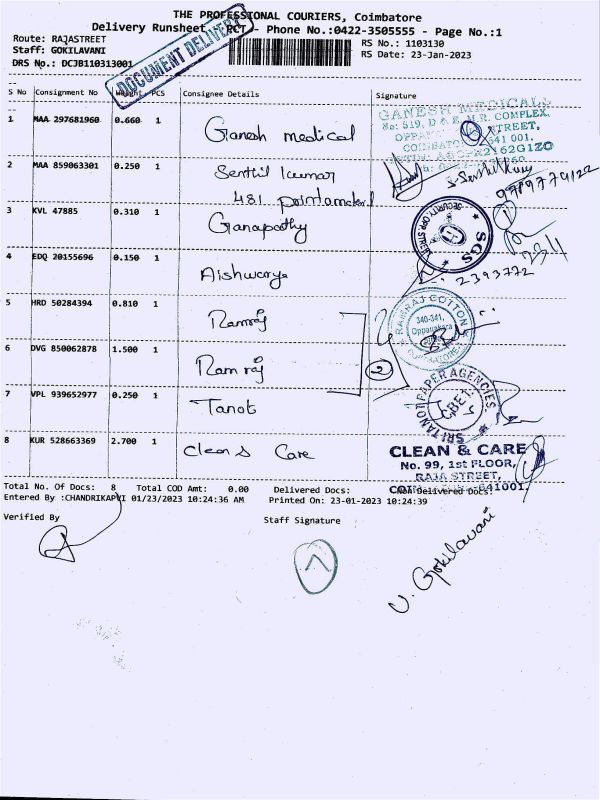 THE PROFESSIONAL COURIERS, Coimbatore
Delivery Runsheet - RCT - Phone No.:0422-3505555 - Page No.:1
Route: RAJASTREET
Staff: GOKILAVANI
DRS No.: DCJB110313001
RS No.: 1103130
RS Date: 23-Jan-2023
DOCUMENT DELIVERY
S No Consignment No Weight PCS Consignee Details Signature
1 MAA 297681960 0.660 1 Ganesh medical
GANESH MEDICAL
No: 519, D & E, M.R. COMPLEX,
STREET,
641 001.
2 MAA 859063301 0.250 1 Senthil kumar
481
9789779122
3 KVL 47885 0.310 1 Ganapathy
SECURITY OPP. STREET
SGS
4 EDQ 20155696 0.150 1 Aishwarya
2393772
5 HRD 50284394 0.810 1 Ramraj
RAMRAJ COTTON
340-341,
Oppanakara
COIMBATORE
6 DVG 850062878 1.500 1 Ramraj
2
7 VPL 939652977 0.250 1 Tanot
SRI TANOT PAPER AGENCIES
CBE-1
8 KUR 528663369 2.700 1 Clean & Care
CLEAN & CARE
No. 99, 1st FLOOR,
RAJA STREET,
641001.
Total No. Of Docs: 8 Total COD Amt: 0.00 Delivered Docs: Non Delivered Docs:
Entered By :CHANDRIKAPVI 01/23/2023 10:24:36 AM Printed On: 23-01-2023 10:24:39
Verified By
Staff Signature
7
V. Gokilavani